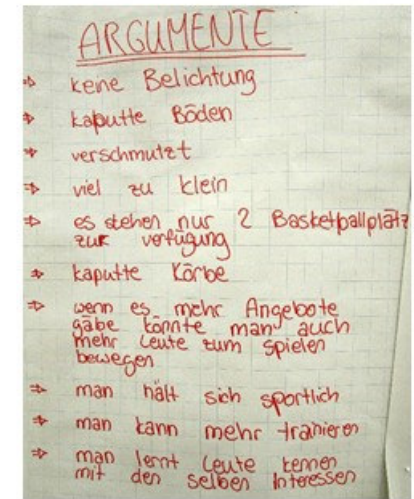 ARGUMENTE
⇒ kene Belichtung
⇒ kaputte Böden
⇒ verschmutzt
⇒ viel zu klein
⇒ es stehen nur 2 Basketballplätz
zur verfügung
⇒ kaputte Körbe
⇒ wenn es mehr Angebote
gäbe könnte man auch
mehr Leute zum spielen
bewegen
⇒ man hält sich sportlich
⇒ man kann mehr tranieren
⇒ man lernt Leute kennen
mit den selben Interessen